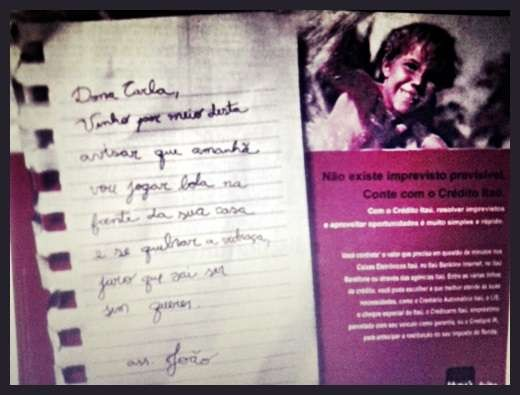 Dona Carla,
Venho por meio desta
avisar que amanhã
vou jogar bola na
frente da sua casa
e se quebrar a vidraça,
juro que vai ser
sem querer.
ass. João
Não existe imprevisto previsível.
Conte com o Crédito Itaú.
Com o Crédito Itaú, resolver imprevistos
e aproveitar oportunidades é muito simples e rápido.
Você contrata o valor que precisa em questão de minutos nos
Caixas Eletrônicos Itaú, no Itaú Bankline Internet, no Itaú
Bankfone ou através das agências Itaú. Entre as várias linhas
de crédito, você pode escolher a que melhor atende às suas
necessidades, como o Crediário Automático Itaú, o LIS,
o cheque especial do Itaú, o Credicarro Itaú, empréstimo
parcelado com seu veículo como garantia, ou o Credipré IR,
para antecipar a restituição do seu imposto de Renda.